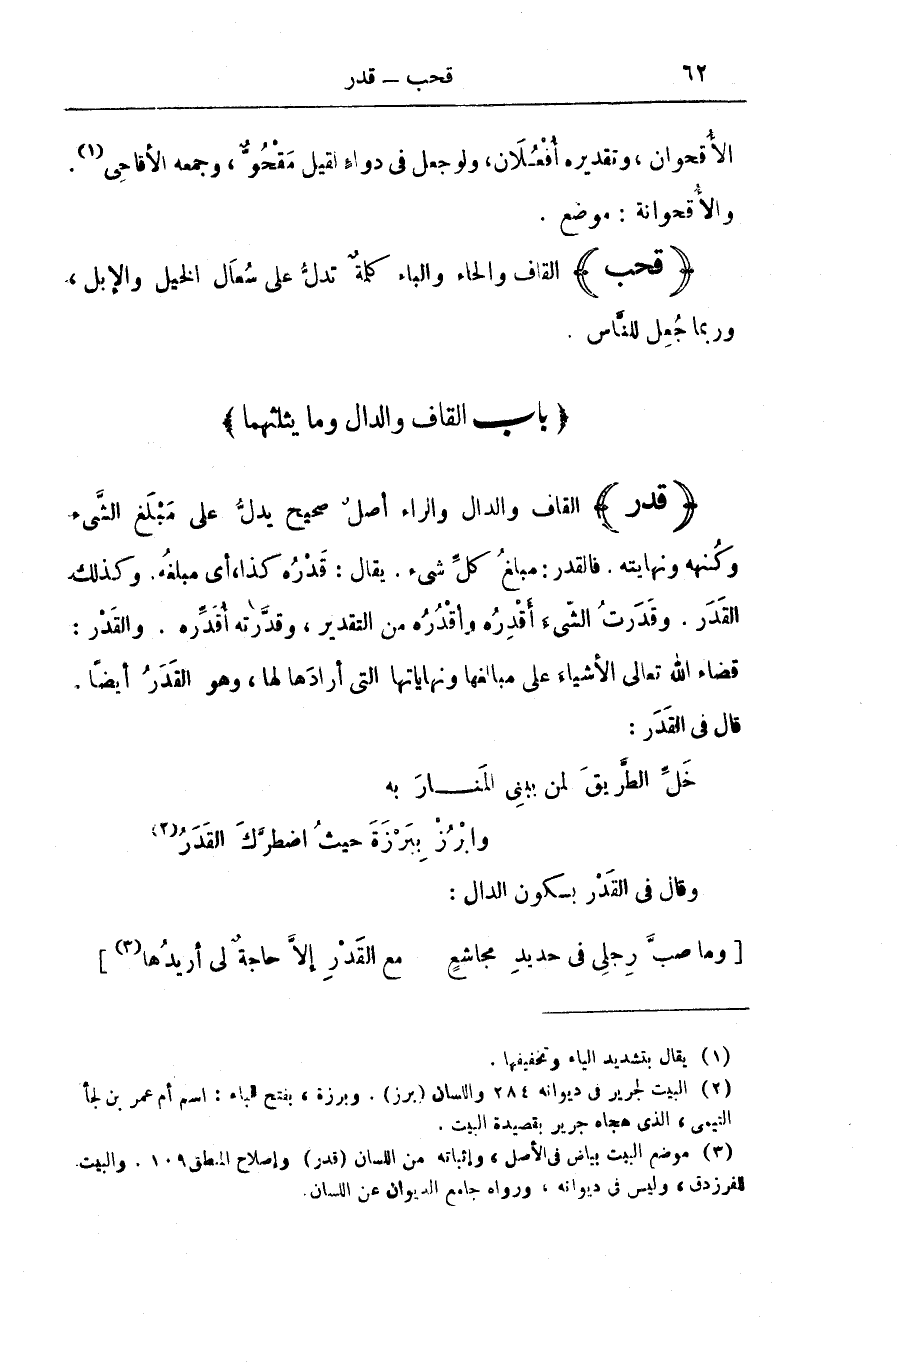 ٦٢
قحب — قدر
الأُقحوان ، وتقديره أُفْعُـلَان ، ولو جعل فى دواءٍ لقيل مَقْحُوٌّ ، وجمعه الأقاحِى(١) .
والأُقحوانة : موضع .
﴿ قحب ﴾ القاف والحاء والباء كلمةٌ تدلُّ على سُعَال الخيل والإبل ،
وربما جُعِل للنَّاس .
﴿ باب القاف والدال وما يثلثهما ﴾
﴿ قدر ﴾ القاف والدال والراء أصلٌ صحيح يدلُّ على مَبْلَغ الشَّىء
وكُنهه ونهايته . فالقدر : مبلغُ كلِّ شىء . يقال : قَدْرُه كذا ، أى مبلغُه . وكذلك
القَدَر . وقَدَرتُ الشّىءَ أَقْدِرُه وأقْدُرُه من التقدير ، وقدَّرته أُقَدِّره . والقَدْر :
قضاء الله تعالى الأشياءَ على مبالغها ونهاياتها التى أرادَها لها ، وهو القَدَرُ أيضًا .
قال فى القَدَر :
خَلِّ الطَّريقَ لمن يبنِى المَنــــارَ به
وابْرُزْ بِبَرْزَةَ حيثُ اضطرَّكَ القَدَرُ(٢)
وقال فى القَدْر بسكون الدال :
[ وما صبَّ رِجلِى فى حديدِ مجاشعٍ    مع القَدْرِ إلاَّ حاجةٌ لى أريدُها(٣) ]
(١) يقال بتشديد الياء وتخفيفها .
(٢) البيت لجرير فى ديوانه ٢٨٤ واللسان (برز) . وبرزة ، بفتح الباء : اسم أم عمر بن لجأ
التيمى ، الذى هجاه جرير بقصيدة البيت .
(٣) موضع البيت بياض فى الأصل ، وإثباته من اللسان (قدر) وإصلاح المنطق ١٠٩ . والبيت
للفرزدق ، وليس فى ديوانه ، ورواه جامع الديوان عن اللسان .